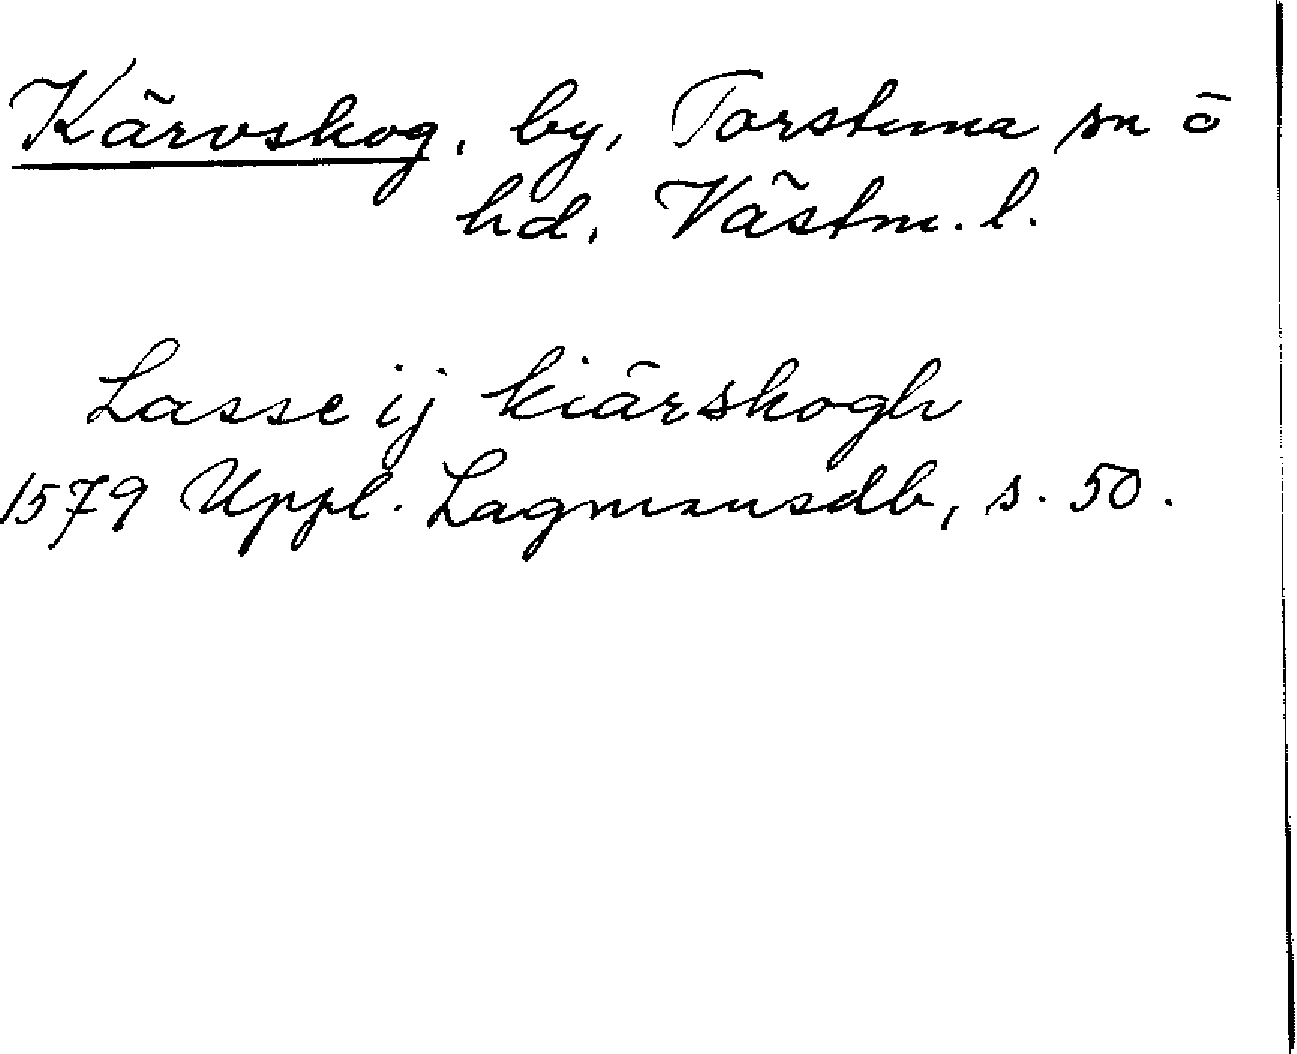 Kärvskog, by, Torstuna sn ō
hd, Västm. l.
Lasse ij kiärskogh
1579 Uppl. Lagmansdb, s. 50.